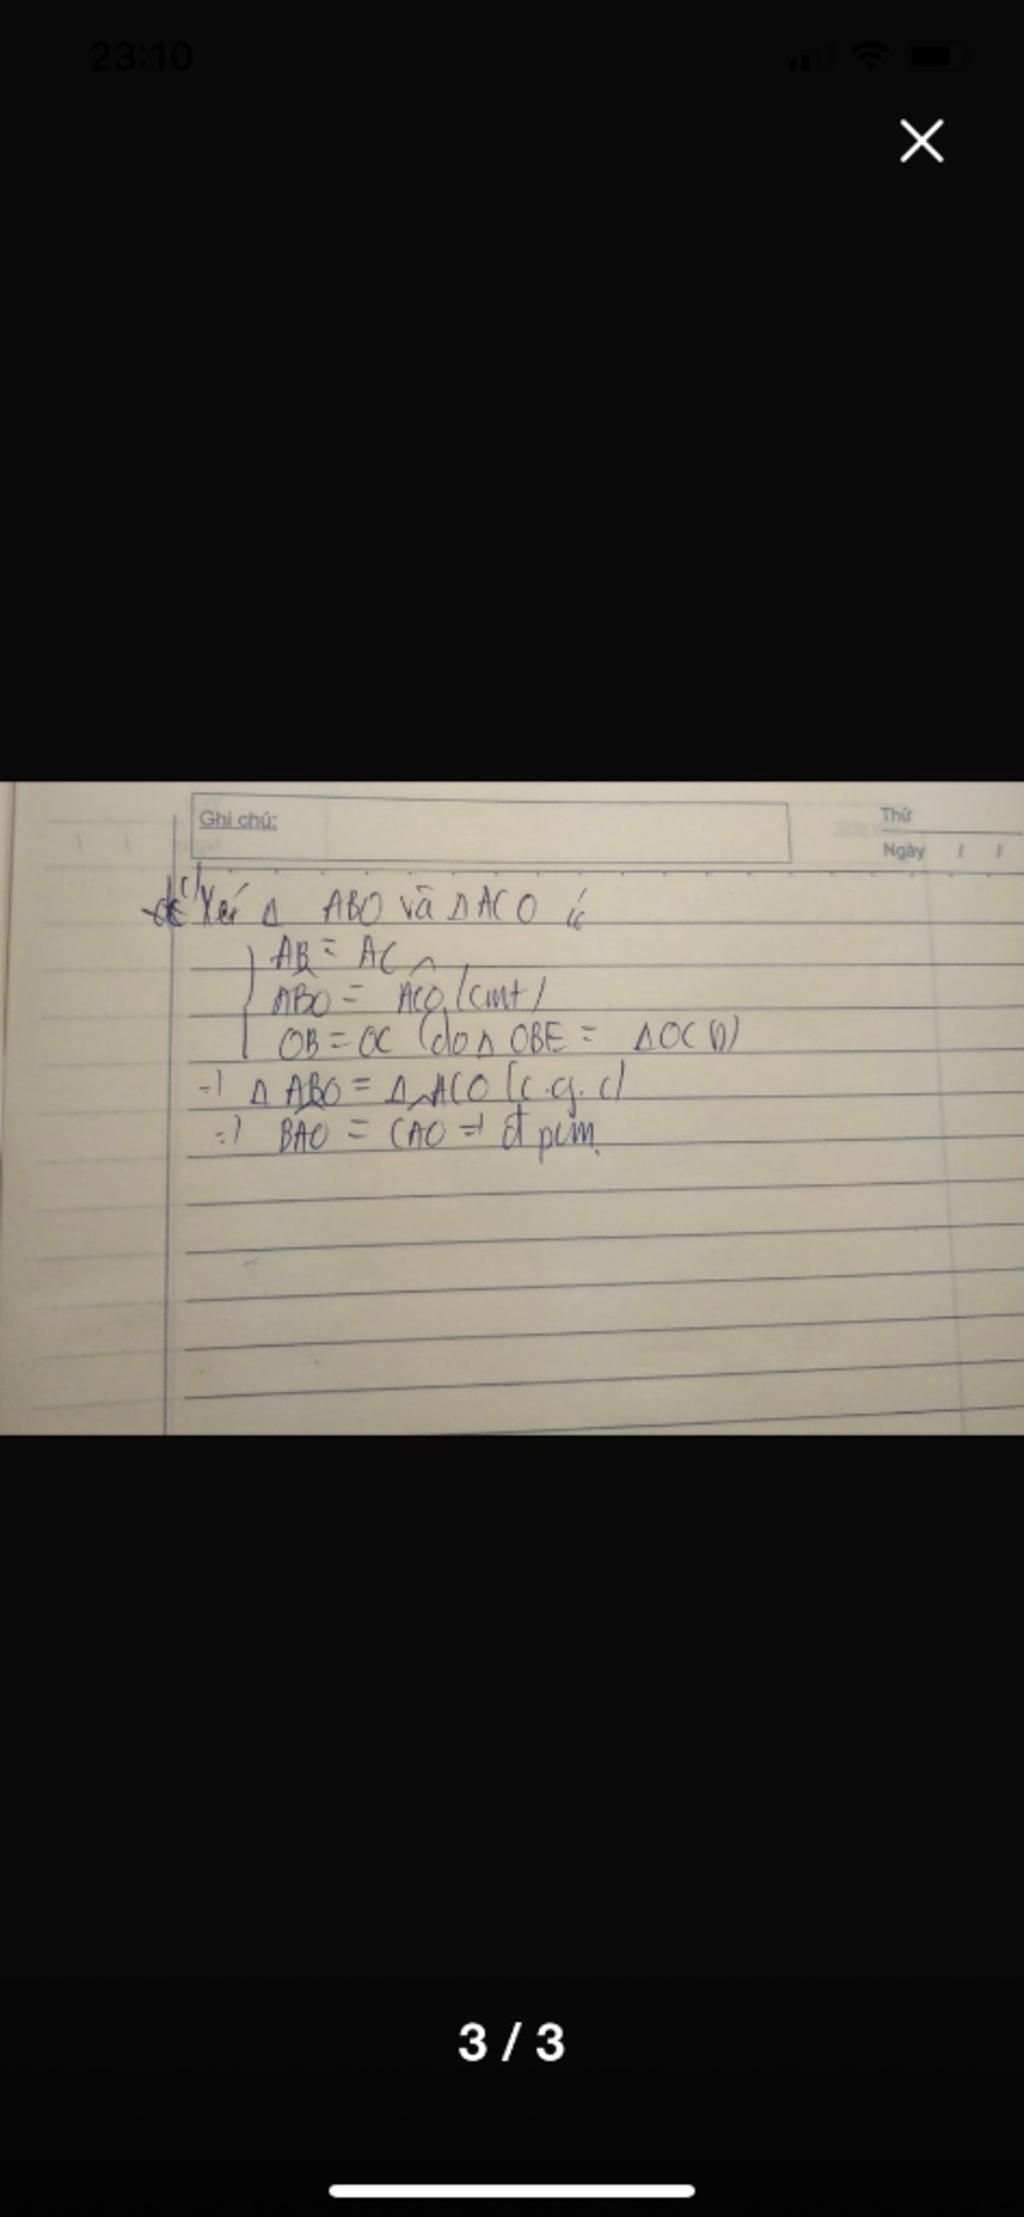 23:10
Ghi chú:
Thứ
Ngày / /
c) Xét Δ ABO và Δ ACO có
AB = AC
ABO = ACO (cmt)
OB = OC (do Δ OBE = Δ OCD)
=> Δ ABO = Δ ACO (c.g.c)
=> BAO = CAO => đpcm
3 / 3